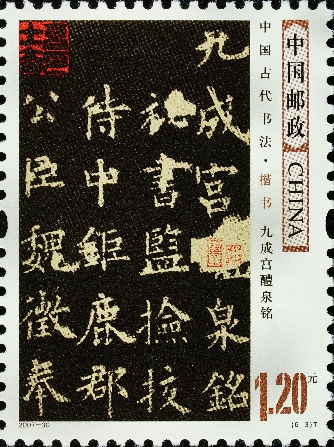 中国邮政
CHINA
中国古代书法·楷书 九成宫醴泉铭
九成宫 泉銘
祕書監撿挍
侍中鉅鹿郡
公臣魏徵奉
1.20元
2007-30
(6-3)T